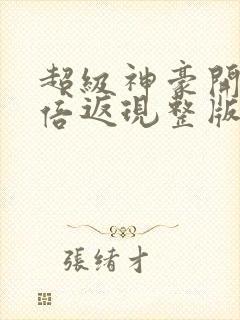 超級神豪開
倍返現整版
張緒才